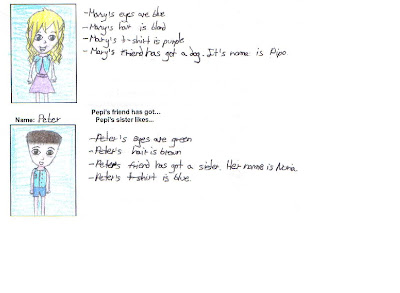 -Mary's eyes are blue
-Mary's hair is blond
-Mary's t-shirt is purple
-Mary's friend has got a dog. It's name is Pipo.
Pepi's friend has got...
Name: Peter Pepi's sister likes...
-Peter's eyes are green
-Peter's hair is brown
-Peter's friend has got a sister. Her name is Nuria.
-Peter's t-shirt is blue.